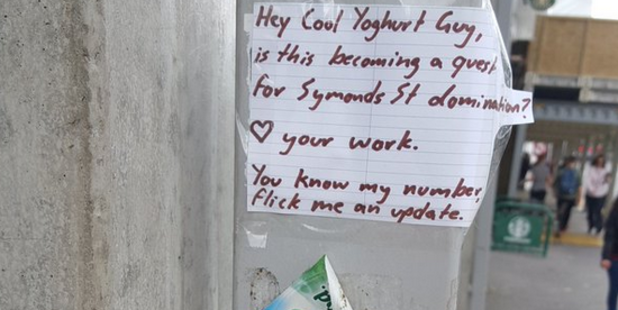 Hey Cool Yoghurt Guy,
is this becoming a quest
for Symonds St domination?
♡ your work.
You know my number,
flick me an update.